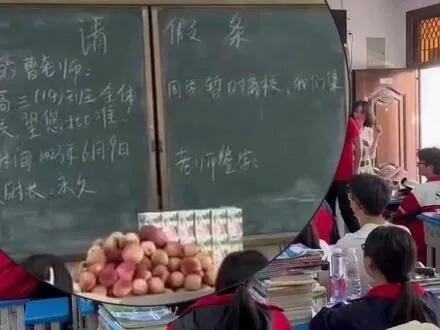 请假条
的曹老师:
高三(14)班全体
同学暂时离校,我们集
望您批准!
时间2023年6月9日
时长:永久
老师签字: